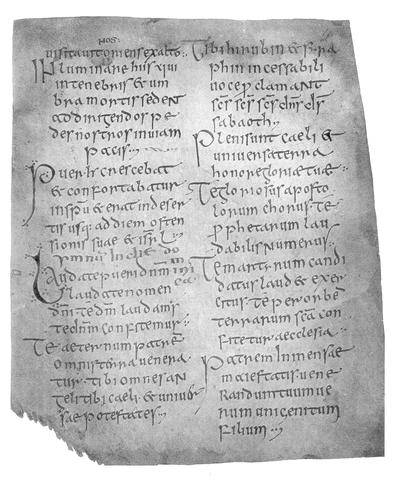 nos
uisitauit oriens exalto
Inluminare his qui
in tenebris & um
bra mortis sedent
ad dirigendos pe
des nostros in uiam
pacis
Puer h crescebat
& confortabatur
in spu & erat in deser
tis usq: ad diem osten
sionis suae
Laudate pueri dnm
laudate nomen
dni te dm laudam
te dnm confitemur
Te aeternum patrem
omnis terra uenera
tur tibi omnes an
geli tibi caeli & uniuer
sae potestates
Tibi hirubin & syra
phin incessabili
uoce proclamant
scs scs scs dns ds
sabaoth
Pleni sunt caeli &
uniuersa terra
honore gloriae tuae
Te gloriosus aposto
lorum chorus te
prophetarum lau
dabilis numerus
Te martirum candi
datus laud& exer
citus te per orbem
terrarum sca con
fitetur aeclesia
Patrem inmensae
maiestatis uene
randum tuum ue
rum unigenitum
filium